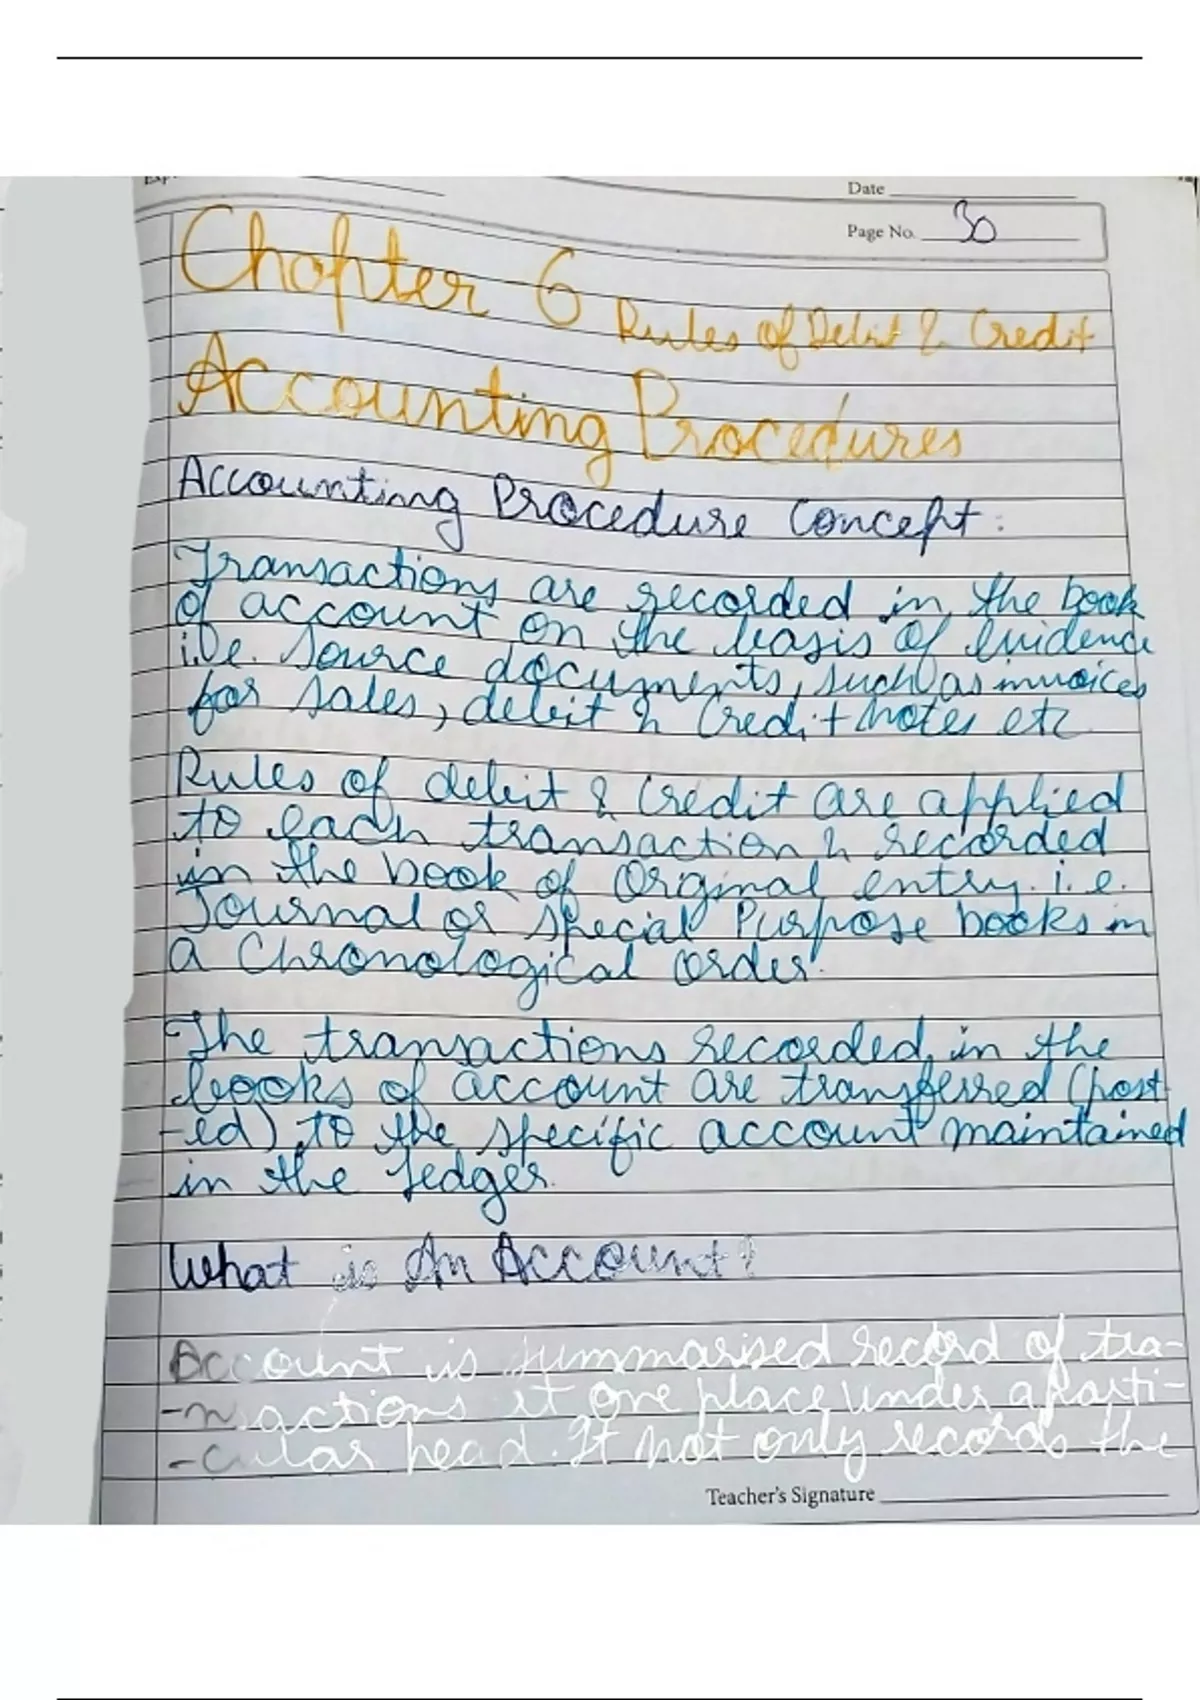 Date
Page No. 30
Chapter 6 Rules of Debit & Credit
Accounting Procedures
Accounting Procedure Concept:
Transactions are recorded in the book
of account on the basis of evidence
i.e. source documents, such as invoices
for sales, debit & Credit notes etc
Rules of debit & Credit are applied
to each transaction & recorded
in the book of Orginal entry. i.e.
Journal or special Purpose books in
a Chronological order.
The transactions recorded in the
books of account are transferred (post
-ed) to the specific account maintained
in the ledger.
What is An Account?
Account is summarised record of tra-
-nsactions at one place under a parti-
-cular head. It not only records the
Teacher's Signature